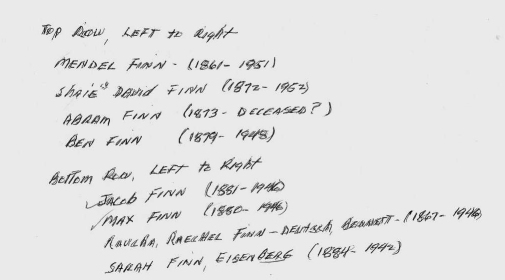 TOP ROW, LEFT to Right
MENDEL FINN - (1861 - 1951)
SHAIE" DAVID FINN (1872 - 1952)
ABRAM FINN (1873 - DECEASED?)
BEN FINN (1879 - 1948)
BOTTOM ROW, LEFT to Right
✓JACOB FINN (1881 - 1946)
✓MAX FINN (1880 - 1946)
RAECHEL FINN - DEUTSCH, BENNETT - (1867 - 1946)
SARAH FINN, EISENBERG (1884 - 1942)